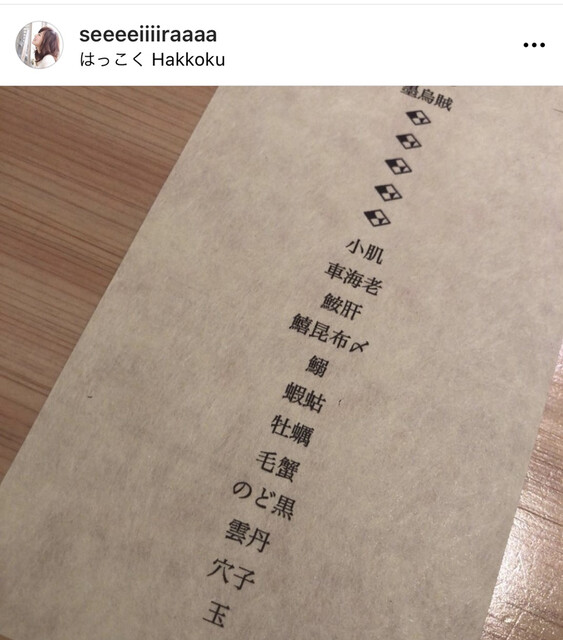 seeeeiiiiraaaa
はっこく Hakkoku
墨烏賊
小肌
車海老
鮟肝
鱚昆布〆
鰯
蝦蛄
牡蠣
毛蟹
のど黒
雲丹
穴子
玉